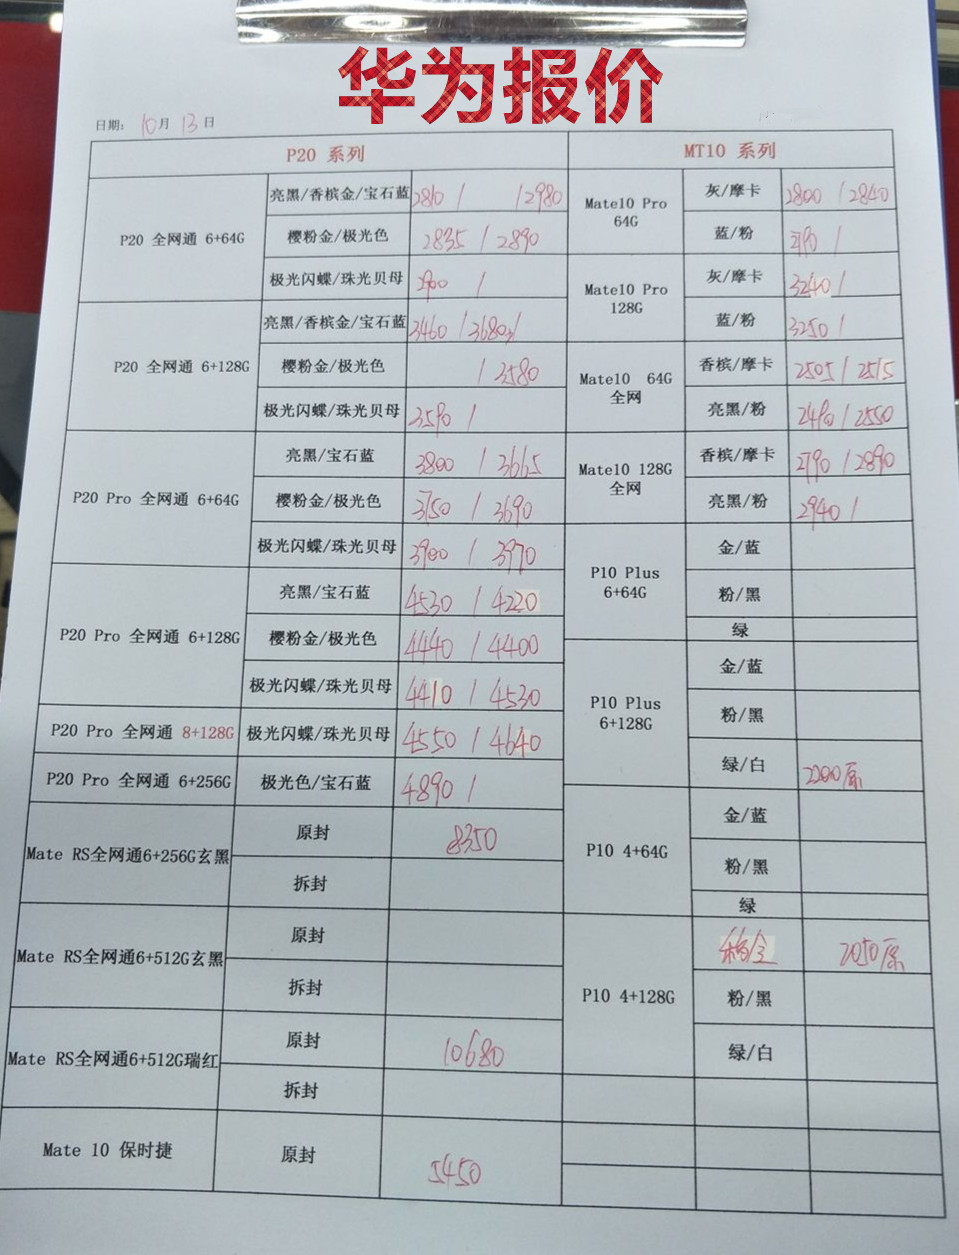 华为报价
日期: 10月 13日
P20 系列
P20 全网通 6+64G
亮黑/香槟金/宝石蓝 2810 / /2980
樱粉金/极光色 2835 / 2890
极光闪蝶/珠光贝母 2900 /
P20 全网通 6+128G
亮黑/香槟金/宝石蓝 3460 / 3680
樱粉金/极光色 / 3580
极光闪蝶/珠光贝母 3590 /
P20 Pro 全网通 6+64G
亮黑/宝石蓝 3800 / 3665
樱粉金/极光色 3750 / 3690
极光闪蝶/珠光贝母 3900 / 3970
P20 Pro 全网通 6+128G
亮黑/宝石蓝 4530 / 4220
樱粉金/极光色 4440 / 4400
极光闪蝶/珠光贝母 4410 / 4530
P20 Pro 全网通 8+128G 极光闪蝶/珠光贝母 4550 / 4640
P20 Pro 全网通 6+256G 极光色/宝石蓝 4890 /
Mate RS全网通6+256G玄黑
原封 8350
拆封
Mate RS全网通6+512G玄黑
原封
拆封
Mate RS全网通6+512G瑞红
原封 10680
拆封
Mate 10 保时捷 原封 5450
MT10 系列
Mate10 Pro
64G
灰/摩卡 2800 / 2840
蓝/粉 2790 /
Mate10 Pro
128G
灰/摩卡 3240 /
蓝/粉 3250 /
Mate10 64G
全网
香槟/摩卡 2505 / 2515
亮黑/粉 2490 / 2550
Mate10 128G
全网
香槟/摩卡 2790 / 2890
亮黑/粉 2940 /
P10 Plus
6+64G
金/蓝
粉/黑
绿
P10 Plus
6+128G
金/蓝
粉/黑
绿/白 2200原
P10 4+64G
金/蓝
粉/黑
绿
P10 4+128G
2050原
粉/黑
绿/白